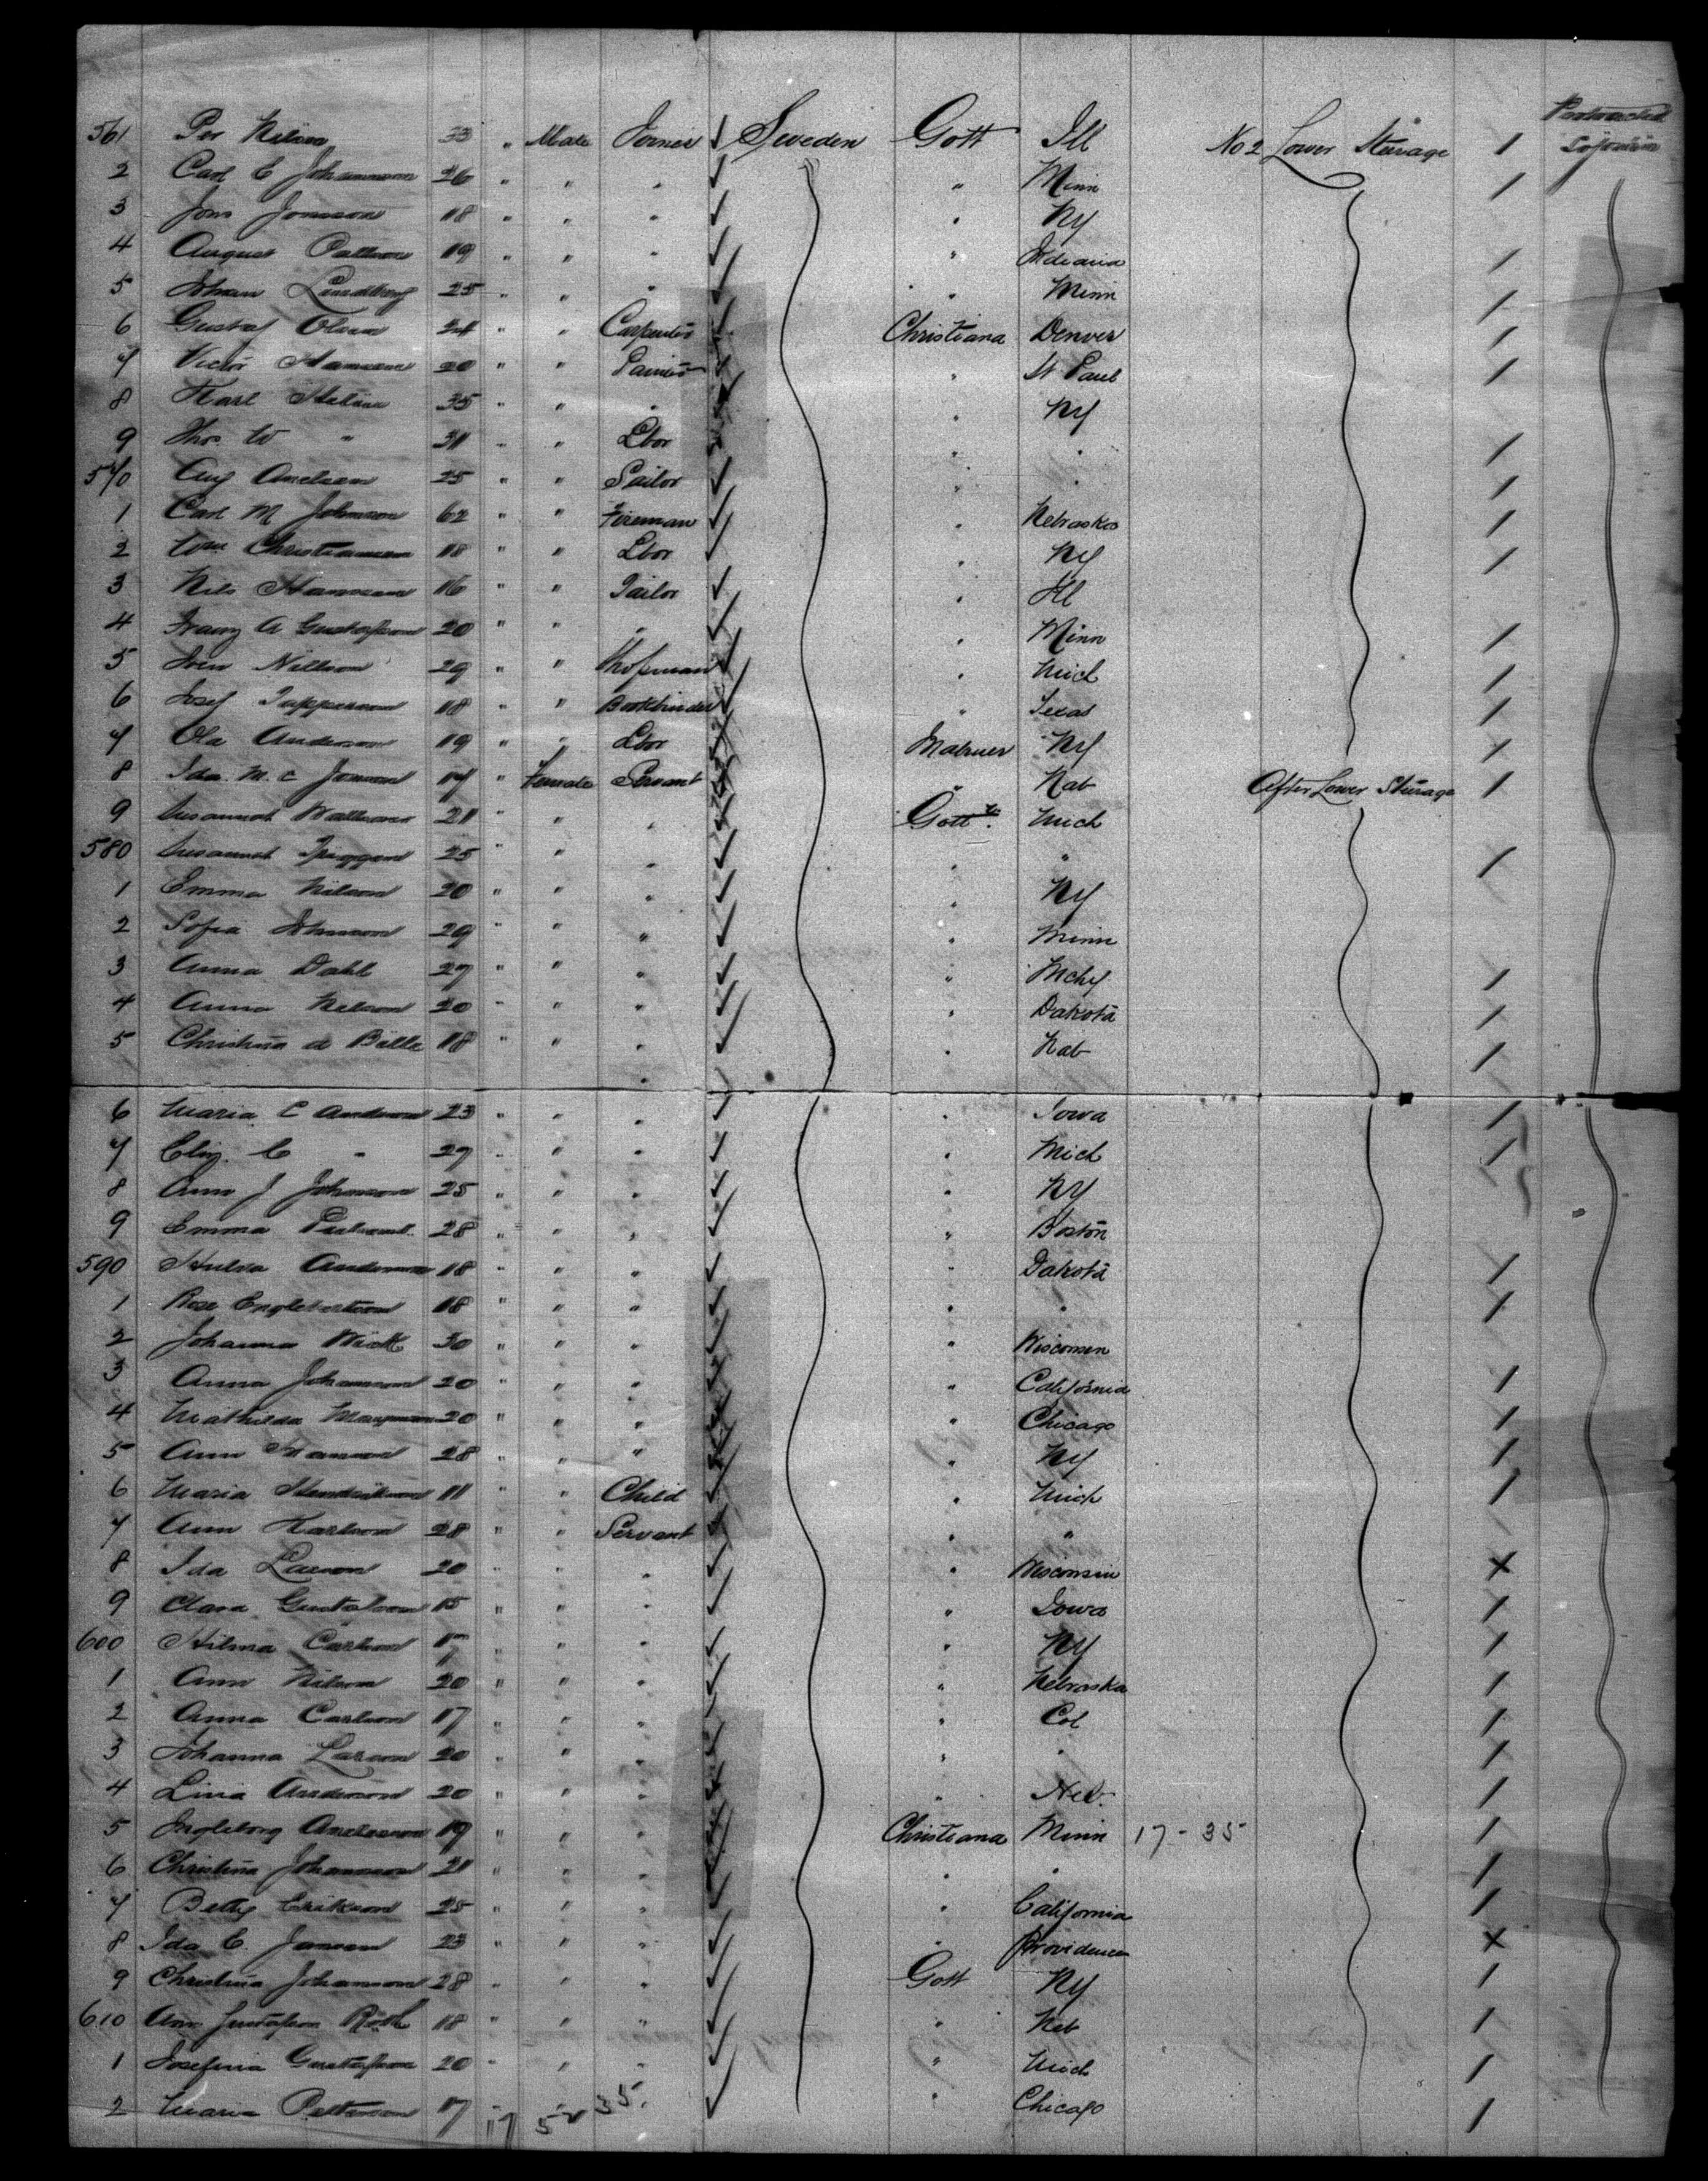 Protracted
561 Per Nilson 33 " Male Sweden Gott Ill No 2 Lower Steerage / Sojourn
2 Carl E Johannson 26 " " " " Minn /
3 Jons Jonsson 18 " " " " NY
4 August 19 " " " " Indiana /
5 Johan Lundberg 25 " " " " Minn /
6 Gustaf Olson 24 " " Carpenter Christiana Denver /
7 Victor Hanson 20 " " Painter " St Paul /
8 Karl 35 " " " " NY
9 Thos W " 31 " " Lbor " " /
570 Aug 25 " " Sailor " " /
1 Carl M Johnson 62 " " Fireman " Nebraska /
2 Wm Christiansen 18 " " Lbor " NY /
3 Nils Hanson 16 " " Tailor " Ill
4 Franz A Gustafson 20 " " " " Minn /
5 Sven Nillson 29 " " Shopman " Mich /
6 Josef 18 " " Bookbinder " Texas /
7 Ola Anderson 19 " " Lbor NY /
8 Ida M. C Jonson 17 " Female Servant " Nab After Lower Steerage /
9 Susannah 21 " " " Gott Mich
580 Susannah 25 " " " " " /
1 Emma Nilson 20 " " " " NY
2 Sofia Johnson 29 " " " " Minn
3 Anna Dahl 27 " " " " /
4 Anna Nelson 20 " " " " Dakota /
5 Christina 18 " " " " Nab /
6 Maria C Anderson 23 " " " " Iowa /
7 C " 27 " " " " Mich /
8 Ann J Johnson 25 " " " " NY
9 Emma 28 " " " " Boston
590 Anderson 18 " " " " Dakota /
1 Rose 18 " " " " " /
2 Johanna Wick 30 " " " " Wisconsin
3 Anna Johanson 20 " " " " California /
4 Mathilda 20 " " " " Chicago /
5 Ann Hanson 28 " " " " NY /
6 Maria 11 " " Child " Mich /
7 Ann Karlson 28 " " Servant " "
8 Ida Larson 20 " " " " Wisconsin X
9 Clara Gustafson 15 " " " " Iowa /
600 Hilma Carlson 17 " " " " NY /
1 Ann Nilson 20 " " " " Nebraska /
2 Anna Carlson 17 " " " " Col /
3 Johanna Larson 20 " " " " " /
4 Lina Anderson 20 " " " " Neb /
5 Ingleborg 19 " " " Christiana Minn 17-35 /
6 Christina Johannson 21 " " " " " /
7 Betty Erikson 25 " " " " California /
8 Ida C. Janson 23 " " " " Providence X
9 Christina Johannson 28 " " " Gott NY /
610 Ann Gustafson 18 " " " " Neb /
1 Josefina Gustafson 20 " " " " Mich /
2 Maria Petterson 17 " " " Chicago /
17 52 35